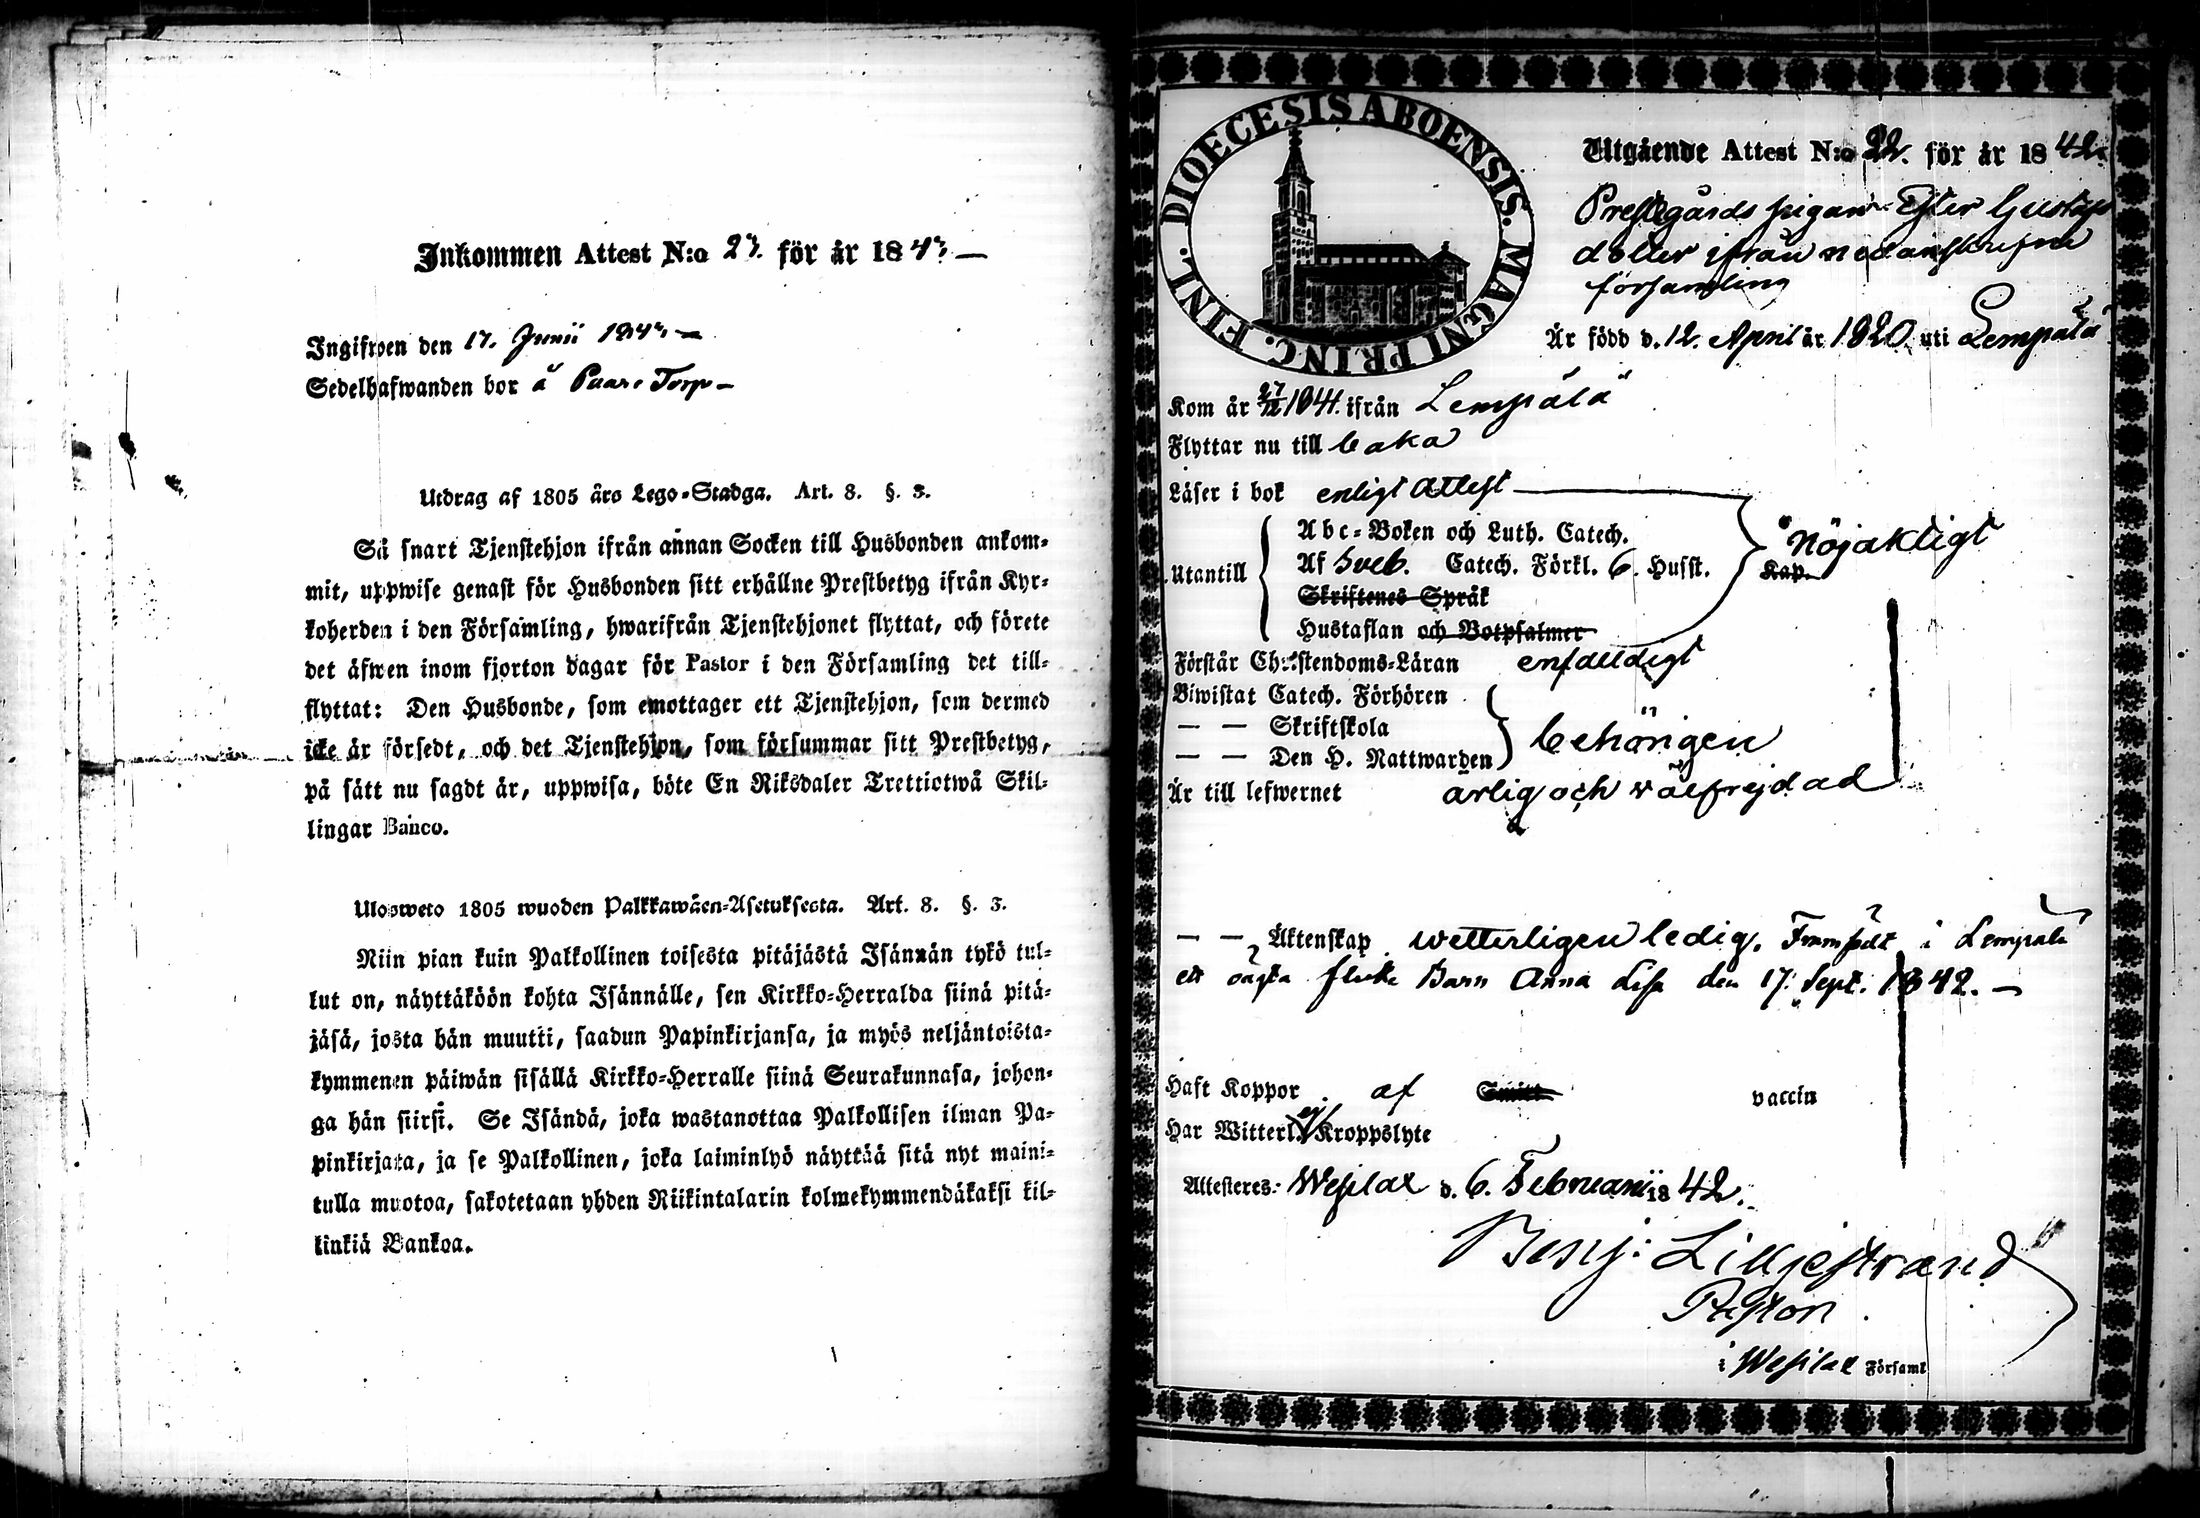 Inkommen Attest N:o 27. för år 184
Ingifwen den 17. Junii 184
Sedelhafwanden bor å Torp
Utdrag af 1805 års Lego-Stadga. Art. 8. §. 3.
Så snart Tjenstehjon ifrån annan Socken till Husbonden ankom-
mit, uppwise genast för Husbonden sitt erhållne Prestbetyg ifrån Kyr-
koherden i den Församling, hwarifrån Tjenstehjonet flyttat, och förete
det äfwen inom fjorton dagar för Pastor i den Församling det till-
flyttat: Den Husbonde, som emottager ett Tjenstehjon, som dermed
icke är försedt, och det Tjenstehjon, som försummar sitt Prestbetyg,
på sätt nu sagdt är, uppwisa, böte En Riksdaler Trettiotwå Skil-
lingar Banco.
Ulosweto 1805 wuoden Palkkawäen-Asetuksesta. Art. 8. §. 3.
Niin pian kuin Palkollinen toisesta pitäjästä Isännän tykö tul-
lut on, näyttäköön kohta Isännälle, sen Kirkko-Herralda siinä pitä-
jäsä, josta hän muutti, saadun Papinkirjansa, ja myös neljäntoista-
kymmenen päiwän sisällä Kirkko-Herralle siinä Seurakunnasa, johon-
ga hän siirsi. Se Isändä, joka wastanottaa Palkollisen ilman Pa-
pinkirjata, ja se Palkollinen, joka laiminlyö näyttää sitä nyt maini-
tulla muotoa, sakotetaan yhden Riikintalarin kolmekymmendäkaksi kil-
linkiä Bankoa.
DIOECESIS ABOENSIS. MAGNI PRINC. FINL.
Utgående Attest N:o 22. för år 1842.
Prestegårds pigan Ester Gustafs
dotter ifrån nedanskrefne
församling
Är född d. 12. April år 1820. uti Lempälä
Kom år 27/12 1841. ifrån Lempälä
Flyttar nu till baka
Läser i bok enligt Attest
Utantill
Abc-Boken och Luth. Catech.
Af Sveb. Catech. Förkl. 6. Husst.
Skriftenes Språk
Hustaflan och Botpsalmer
Kap.
nöjaktigt
Förstår Christendoms-Läran enfaldigt
Biwistat Catech. Förhören
— — Skriftskola
— — Den H. Nattwarden
behörigen
Är till lefwernet ärlig och välfrejdad
— — Äktenskap wetterligen ledig. Framfödt i Lempälä
ett oägta flicke Barn Anna Lisa den 17. Sept. 1842.
Haft Koppor af Smitt vaccin
Har Witterl. ej Kroppslyte
Attesteres: Wesilax d. 6. Februarii 1842.
Benj: Liljestrand
Pastor
i Wesilax Församl